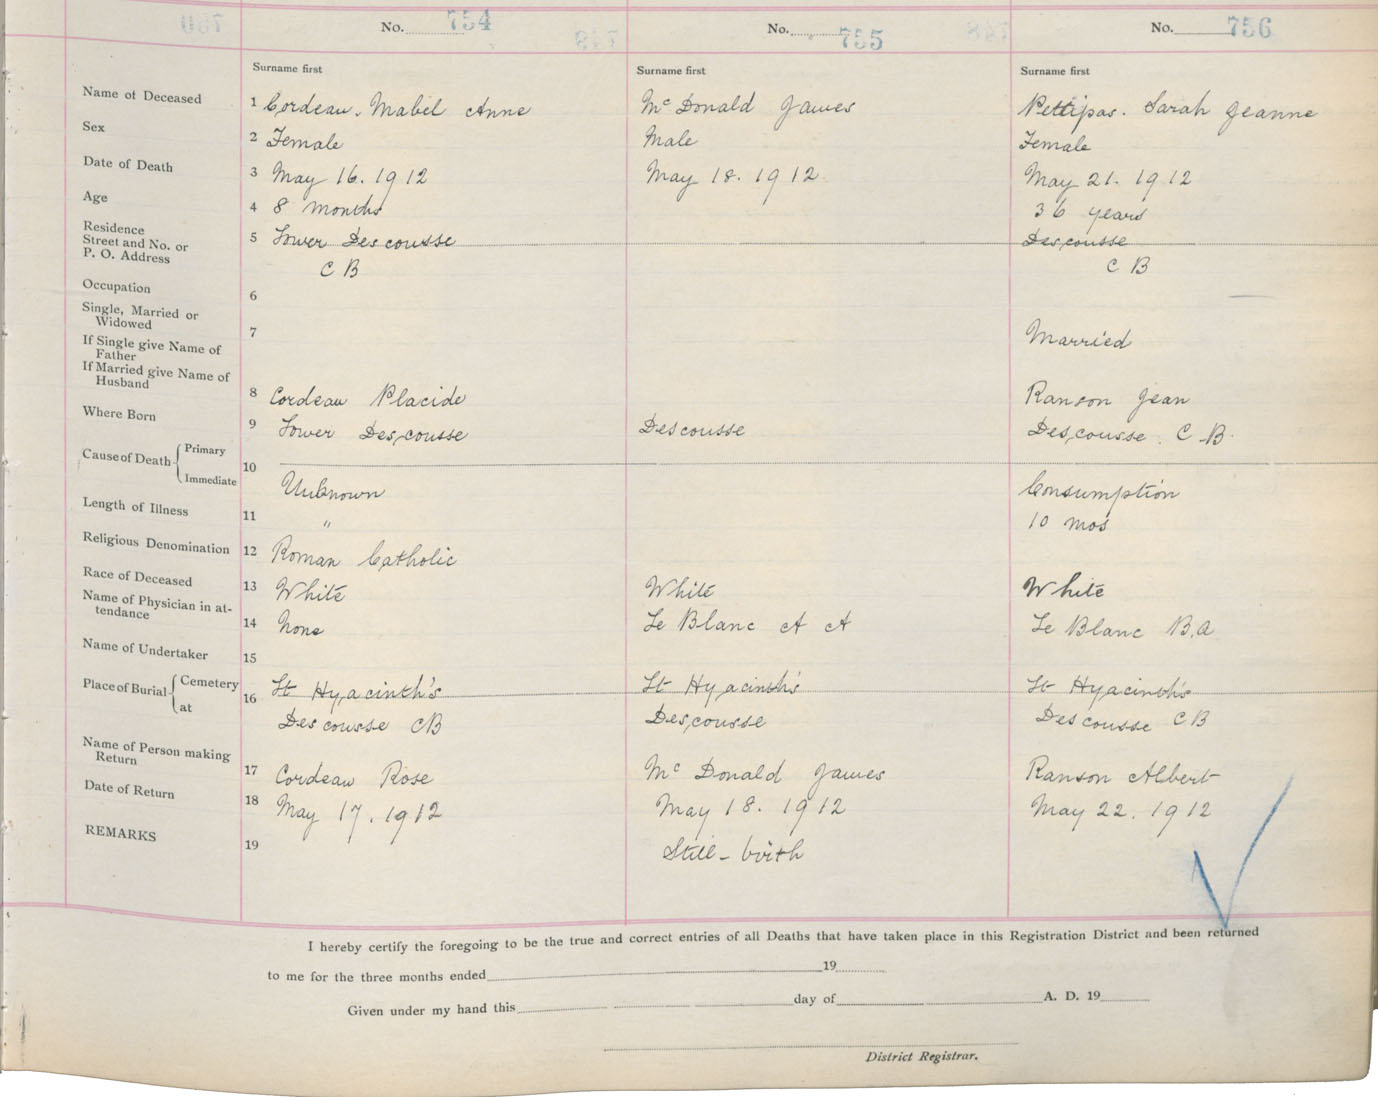 No. 754
No. 755
No. 756
Surname first
Surname first
Surname first
Name of Deceased 1 Cordeau. Mabel Anne
McDonald James
Pettipas. Sarah Jeanne
Sex 2 Female
Male
Female
Date of Death 3 May 16. 1912
May 18. 1912
May 21. 1912
Age 4 8 months
36 years
Residence
Street and No. or
P. O. Address
5 Lower Descousse
C B
Descousse
C B
Occupation 6
Single, Married or
Widowed
7
Married
If Single give Name of
Father
If Married give Name of
Husband
8 Cordeau Placide
Ranson Jean
Where Born 9 Lower Descousse
Descousse
Descousse. C B.
Cause of Death Primary
Immediate
10
Unknown
Consumption
Length of Illness 11 "
10 mos
Religious Denomination 12 Roman Catholic
Race of Deceased 13 White
White
White
Name of Physician in at-
tendance
14 None
Le Blanc A A
Le Blanc B.A
Name of Undertaker 15
Place of Burial Cemetery
at
16 St Hyacinth's
Descousse CB
St Hyacinth's
Descousse
St Hyacinth's
Descousse CB
Name of Person making
Return
17 Cordeau Rose
McDonald James
Ranson Albert
Date of Return 18 May 17. 1912
May 18. 1912
May 22. 1912
REMARKS 19
Still-birth
I hereby certify the foregoing to be the true and correct entries of all Deaths that have taken place in this Registration District and been returned
to me for the three months ended 19
Given under my hand this day of A. D. 19
District Registrar.